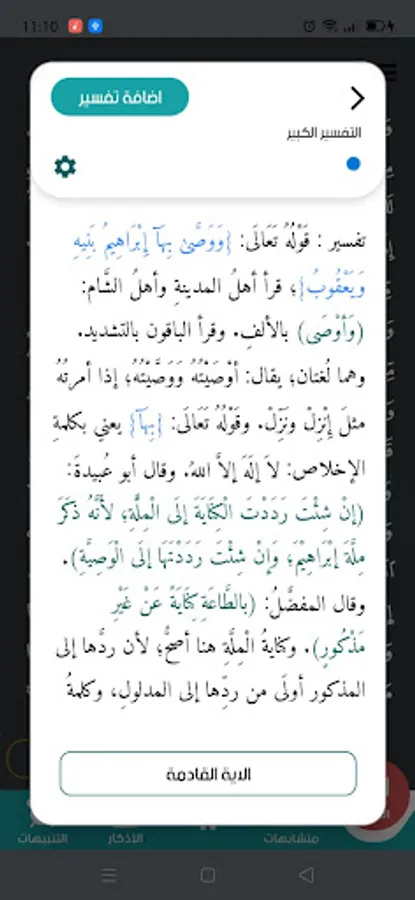 11:10
اضافة تفسير
التفسير الكبير
تفسير : قَوْلُهُ تَعَالَى: {وَوَصَّىٰ بِهَآ إِبْرَاهِيمُ بَنِيهِ
وَيَعْقُوبُ}؛ قرأ أهلُ المدينةِ وأهلُ الشَّام:
(وَأَوْصَى) بالألفِ. وقرأ الباقون بالتشديد.
وهما لُغتان؛ يقال: أوْصَيْتُهُ وَوَصَّيْتُهُ؛ إذا أمرتُهُ
مثلَ إِنْزِلْ ونَزِّلْ. وقَوْلُهُ تَعَالَى: {بِهَآ} يعني بكلمةِ
الإخلاص: لاَ إلَهَ إلاَّ اللهُ. وقال أبو عُبيدةَ:
(إنْ شِئْتَ رَدَدْتَ الْكِنَايَةَ إلَى الْمِلَّةِ؛ لأَنَّهُ ذَكَرَ
مِلَّةَ إبْرَاهِيْمَ؛ وَإنْ شِئْتَ رَدَدْتَهَا إلَى الْوَصِيَّةِ).
وقال المفضَّلُ: (بالطَّاعَةِ كِنَايَةً عَنْ غَيْرِ
مَذْكُورٍ). وكنايةُ الْمِلَّةِ هنا أصحُّ؛ لأن ردَّها إلى
المذكور أولَى من ردِّها إلى المدلولِ، وكلمةُ
الاية القادمة
متشابهات
الأذكار
التنبيهات